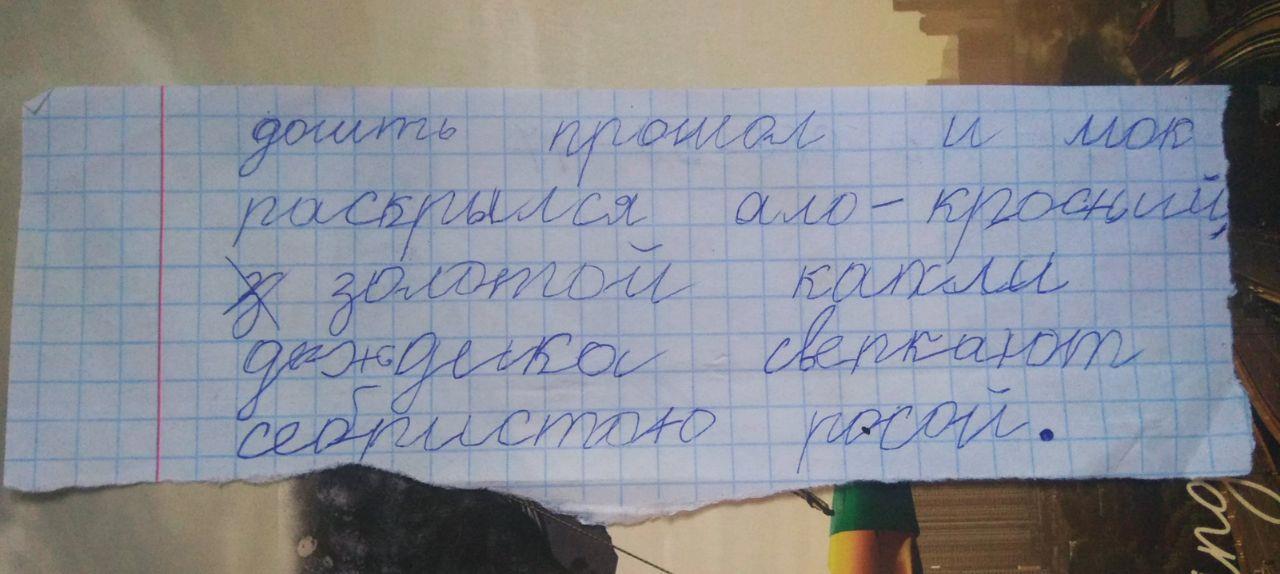 дошть прошол и мок
раскрылся ало-кросный,
золотой капли
дождика сверкают
себристою росой.
ing